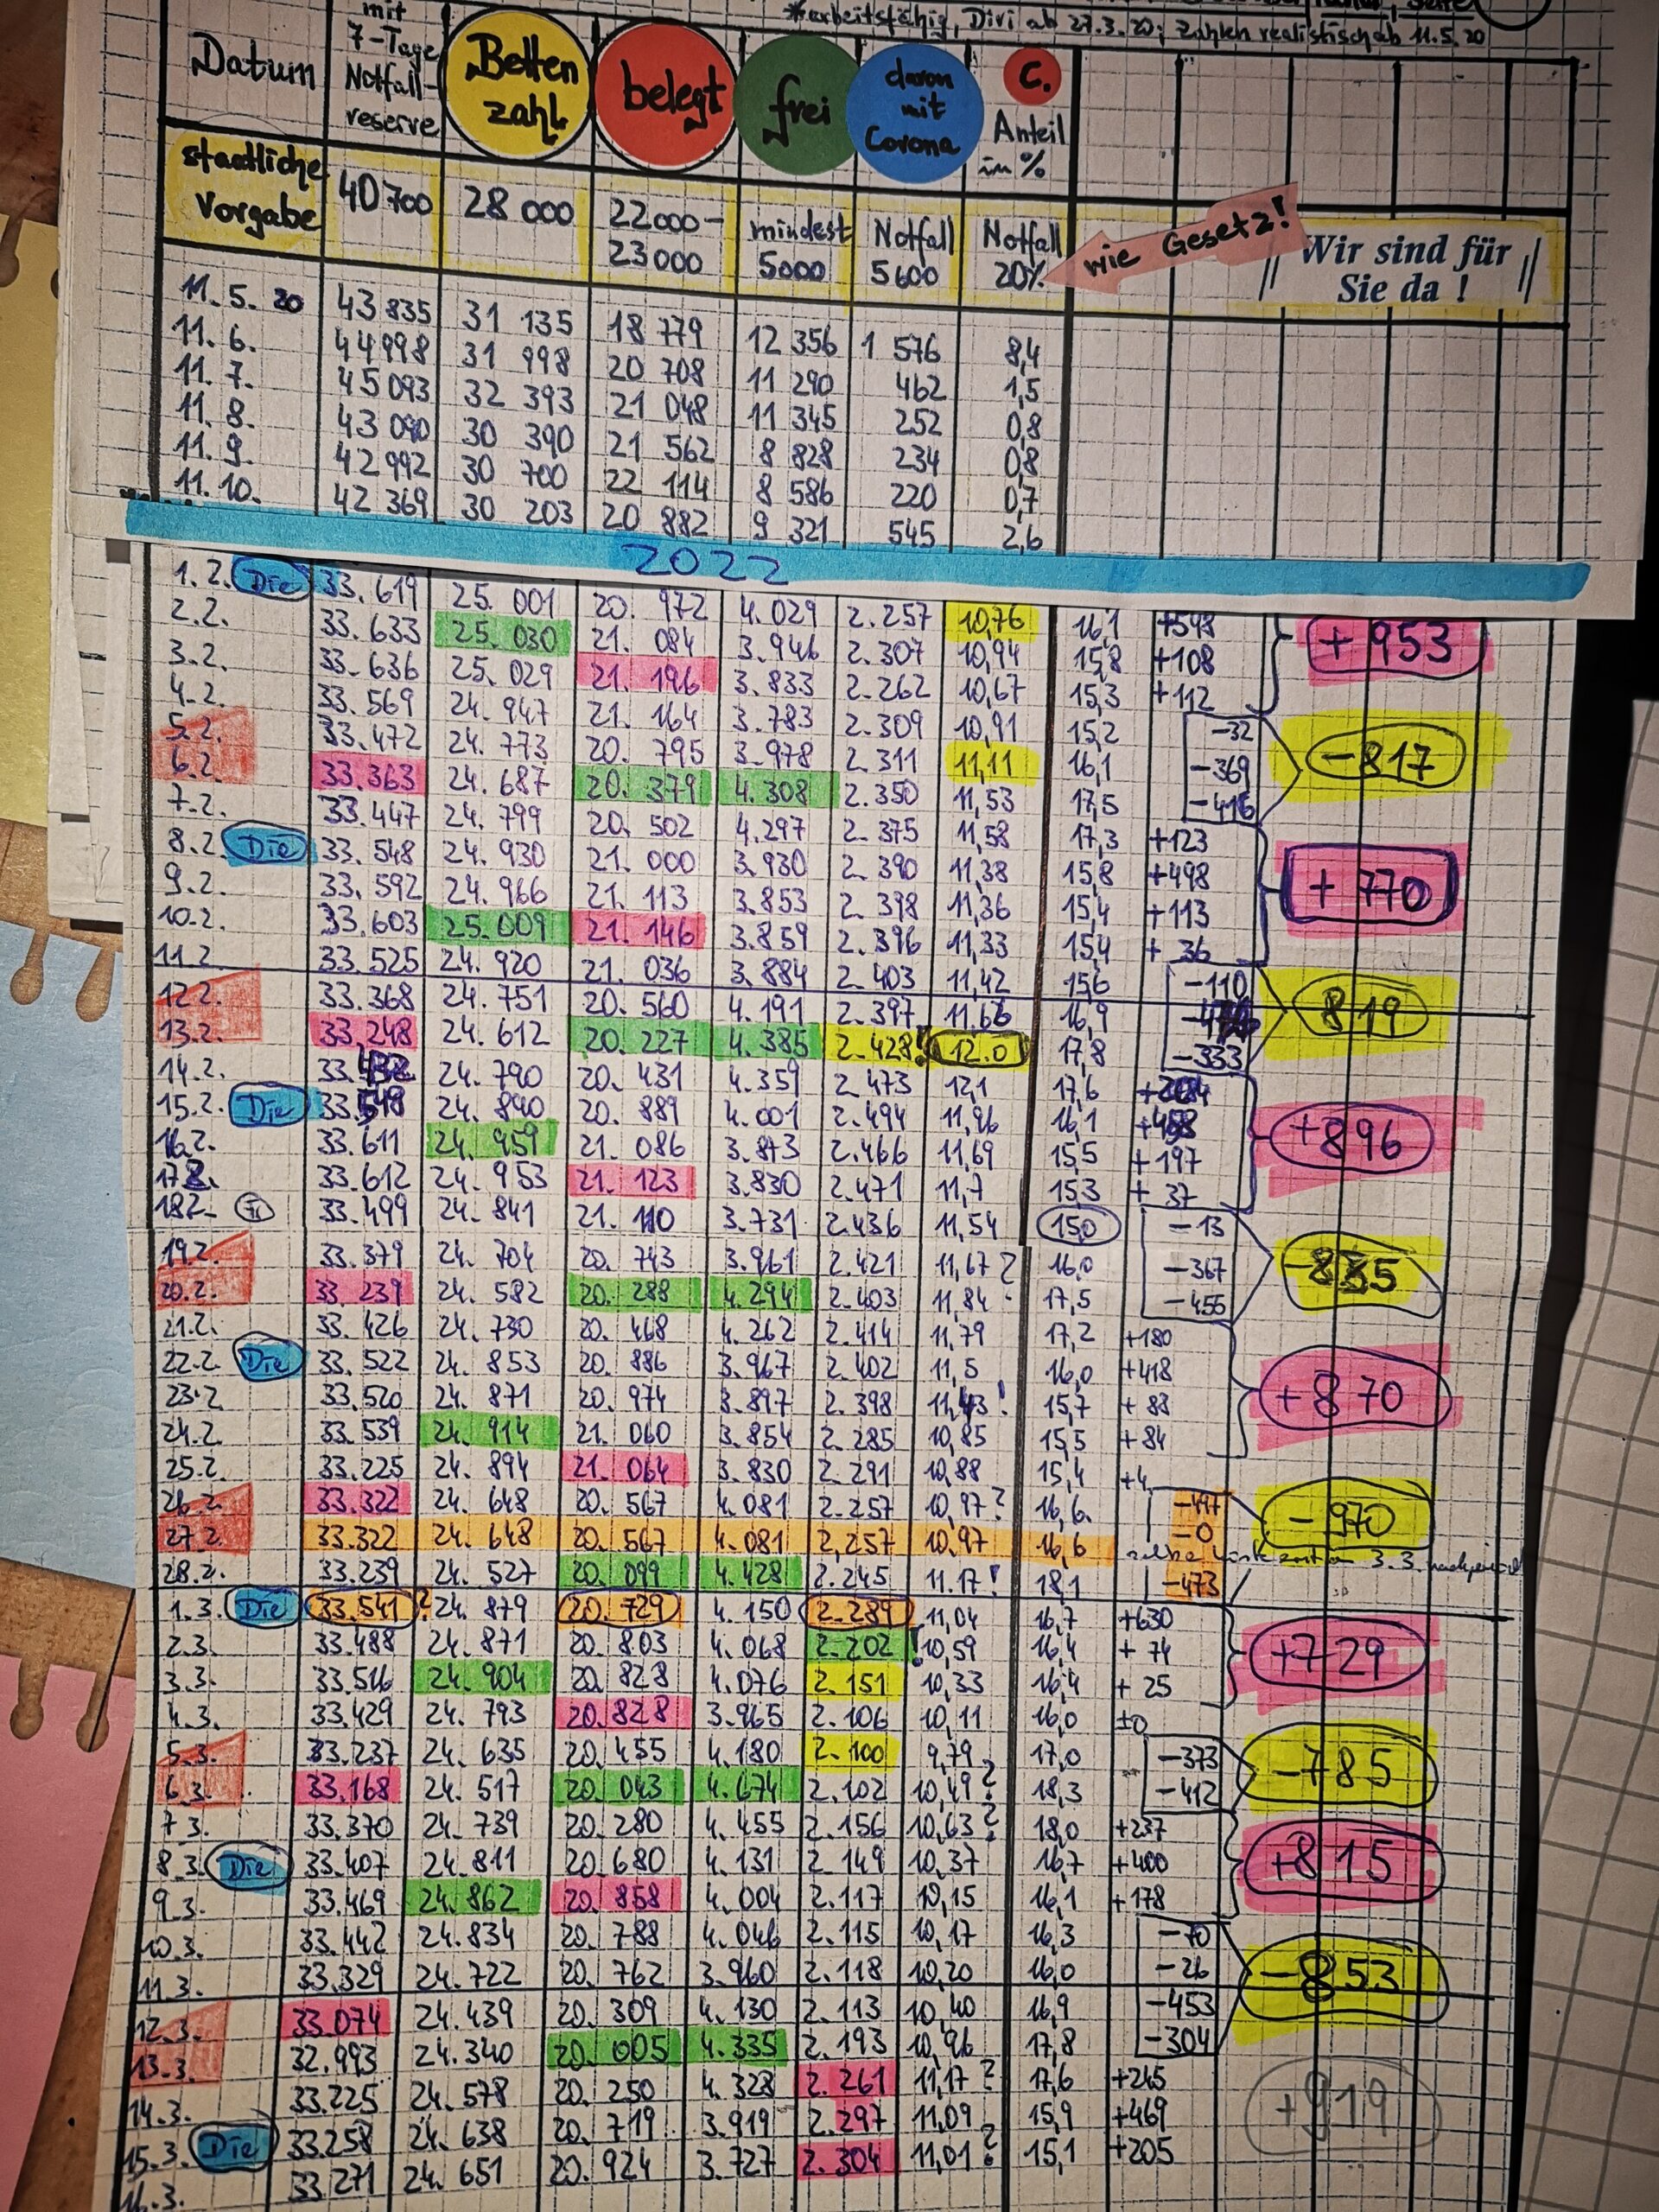 *arbeitsfähig, Divi ab 27.3.20; Zahlen realistisch ab 11.5.20
Datum mit 7-Tage Notfall-reserve Betten zahl belegt frei davon mit Corona C. Anteil in %
staatliche Vorgabe 40 700 28 000 22000-23000 mindest 5000 Notfall 5600 Notfall 20% wie Gesetz!
Wir sind für
Sie da !
11. 5. 20 43 835 31 135 18 779 12 356 1 576 8,4
11. 6. 44 998 31 998 20 708 11 290 462 1,5
11. 7. 45 093 32 393 21 048 11 345 252 0,8
11. 8. 43 090 30 390 21 562 8 828 234 0,8
11. 9. 42 992 30 700 22 114 8 586 220 0,7
11. 10. 42 369 30 203 20 882 9 321 545 2,6
2022
1. 2. Die 33. 619 25. 001 20. 972 4. 029 2. 257 10,76 16,1 +953
2. 2. 33. 633 25. 030 21. 084 3. 946 2. 307 10,94 15,8 +108
3. 2. 33. 636 25. 029 21. 196 3. 833 2. 262 10,67 15,3 +112
4. 2. 33. 569 24. 947 21. 164 3. 783 2. 309 10,91 15,2 -32
5. 2. 33. 472 24. 773 20. 795 3. 978 2. 311 11,11 16,1 -369 -817
6. 2. 33. 363 24. 687 20. 379 4. 308 2. 350 11,53 17,5 -416
7. 2. 33. 447 24. 799 20. 502 4. 297 2. 375 11,58 17,3 +123
8. 2. Die 33. 548 24. 930 21. 000 3. 930 2. 390 11,38 15,8 +498 +770
9. 2. 33. 592 24. 966 21. 113 3. 853 2. 398 11,36 15,4 +113
10. 2. 33. 603 25. 009 21. 146 3. 859 2. 396 11,33 15,4 + 36
11. 2 33. 525 24. 920 21. 036 3. 884 2. 403 11,42 15,6 -110
12 2. 33. 368 24. 751 20. 560 4. 191 2. 397 11,66 16,9 819
13. 2. 33. 248 24. 612 20. 227 4. 385 2. 428! 12.0 17,8 -333
14. 2. 24. 790 20. 431 4. 359 2 473 12,1 17,6
15. 2. Die 33. 548 24. 890 20. 889 4. 001 2. 494 11,96 16,1 +458 +896
16. 2. 33. 611 24. 959 21. 086 3. 873 2. 466 11,69 15,5 + 197
17 2. 33. 612 24. 953 21. 123 3. 830 2. 471 11,7 15,3 + 37
18 2. 33. 499 24. 841 21. 110 3. 731 2. 436 11,54 15,0 -13
19. 2. 33. 379 24. 704 20. 743 3. 961 2. 421 11,67 ? 16,0 -367 -835
20. 2. 33. 239 24. 582 20. 288 4. 294 2. 403 11,84 17,5 -455
21. 2. 33. 426 24. 730 20. 468 4. 262 2. 414 11,79 17,2 +180
22. 2. Die 33. 522 24. 853 20. 886 3. 967 2. 402 11,5 16,0 +418
23. 2 33. 520 24. 871 20. 974 3. 897 2. 398 11,43 ! 15,7 + 88 +870
24. 2. 33. 539 24. 914 21. 060 3. 854 2. 285 10,85 15,5 + 84
25. 2. 33. 225 24. 894 21. 064 3. 830 2. 291 10,88 15,4 +4
26. 2. 33. 322 24. 648 20. 567 4. 081 2. 257 10,97 ? 16,6. -497 -970
27. 2. 33. 322 24. 648 20. 567 4. 081 2,257 10,97 16,6 -0 3.3.
28. 2. 33. 239 24. 527 20. 099 4. 428 2. 245 11.17 ! 18,1 -473
1. 3. Die 33. 541 ? 24. 879 20. 729 4. 150 2. 289 11,04 16,7 +630
2. 3. 33. 488 24. 871 20. 803 4. 068 2. 202 ! 10,59 16,4 + 74 +729
3. 3. 33. 516 24. 904 20. 828 4. 076 2. 151 10,33 16,4 + 25
4. 3. 33. 429 24. 793 20. 828 3. 965 2. 106 10,11 16,0 ±0
5. 3. 33. 237 24. 635 20. 455 4. 180 2. 100 9,79 17,0 -373 -785
6. 3. 33. 168 24. 517 20. 043 4. 674 2. 102 10,49 ? 18,3 -412
7 3. 33. 370 24. 739 20. 280 4. 455 2. 156 10,63 ? 18,0 +237
8. 3. Die 33. 407 24. 811 20. 680 4. 131 2 149 10,37 16,7 +400 +815
9. 3. 33. 469 24. 862 20. 858 4. 004 2. 117 10,15 16,1 +178
10. 3. 33. 442 24. 834 20. 788 4. 046 2. 115 10,17 16,3 -70
11. 3. 33. 329 24. 722 20. 762 3. 960 2. 118 10,20 16,0 -26 -853
12. 3. 33. 074 24. 439 20. 309 4. 130 2. 113 10,40 16,9 -453
13. 3. 32. 993 24. 340 20. 005 4. 335 2. 193 10,96 17,8 -304
14. 3. 33. 225 24. 578 20. 250 4. 328 2. 261 11,17 ? 17,6 +245 +919
15. 3. Die 33. 258 24. 638 20. 719 3. 919 2. 297 11,09 15,9 +469
16. 3. 33 271 24. 651 20. 924 3. 727 2. 304 11,01 ? 15,1 +205